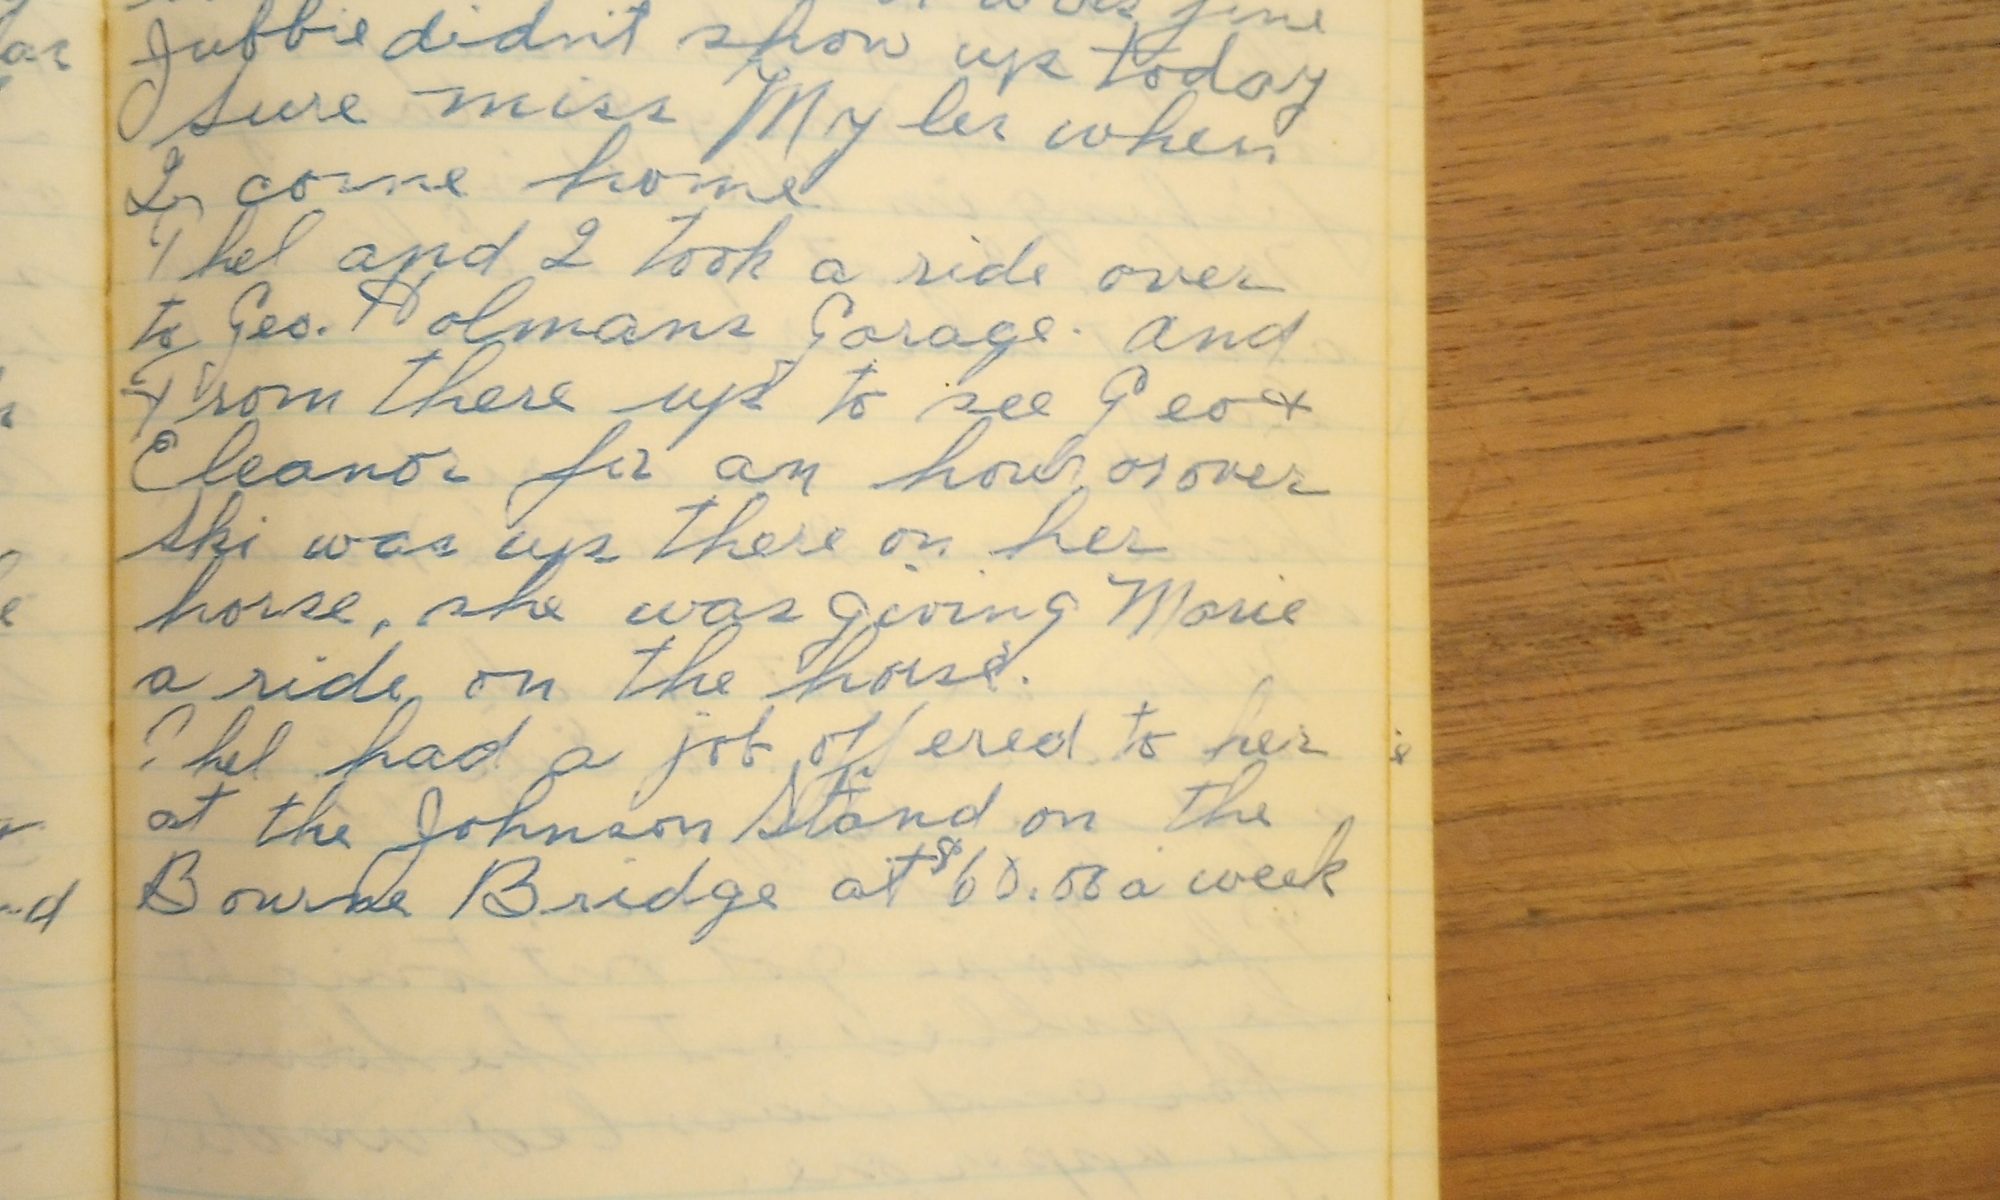 was fine
Jubbie didn't show up today
Sure miss Myler when
I come home
Thel and I took a ride over
to Geo. Holmans Garage. and
From there up to see Geo +
Eleanor for an hour or over
Ski was up there on her
horse, she was giving Marie
a ride on the horse.
Thel had a job offered to her
at the Johnson Stand on the
Bourne Bridge at $60.00 a week